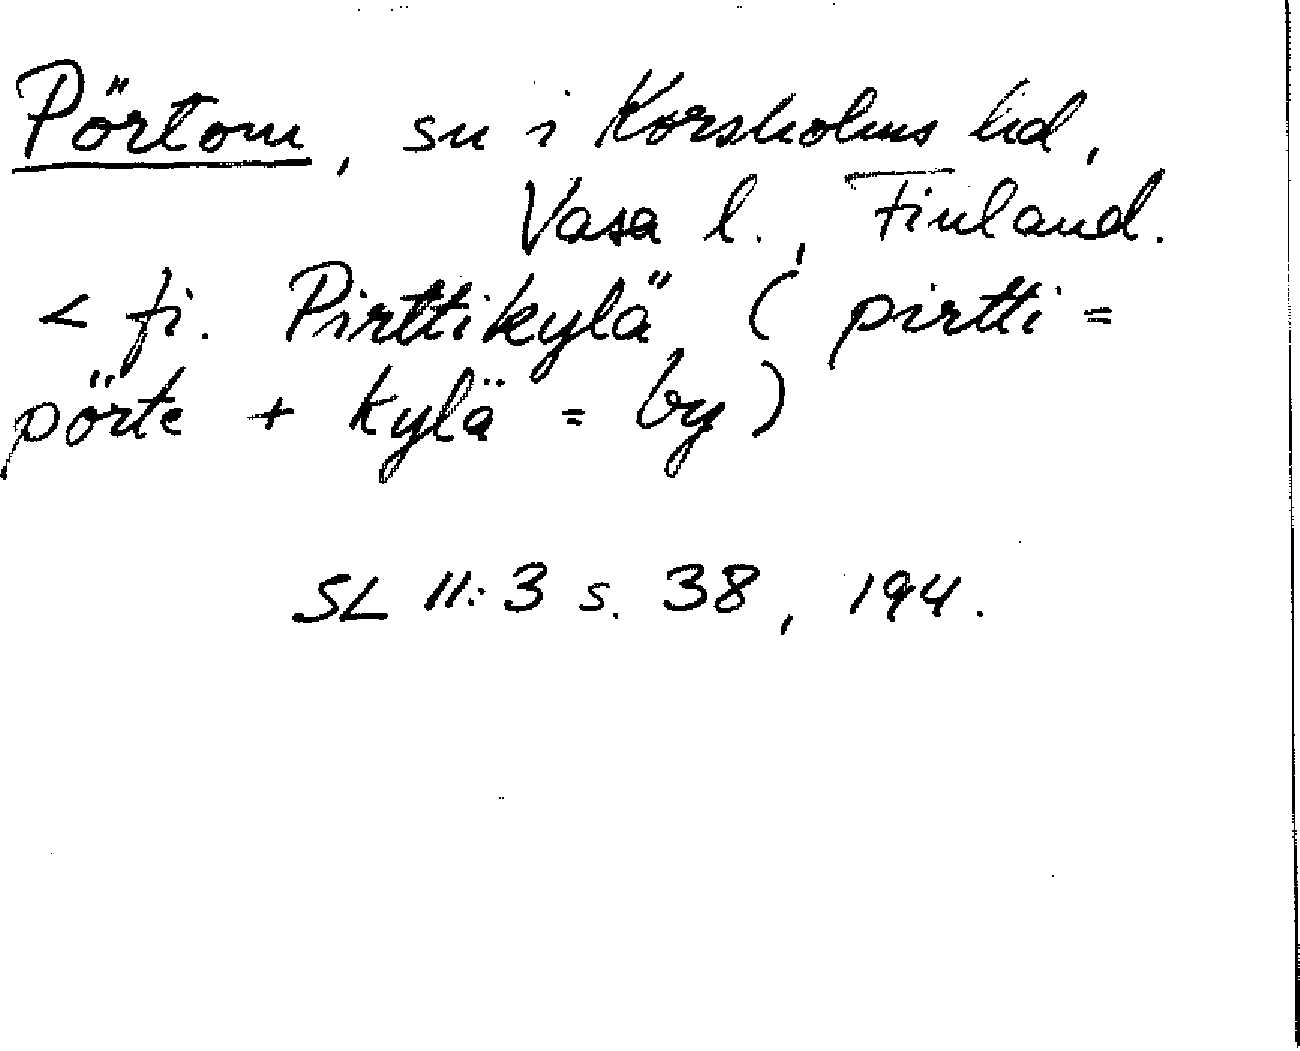 Pörtom, sn i Korsholms hd,
Vasa l., Finland.
< fi. Pirttikylä (pirtti =
pörte + kylä = by)
SL 11:3 s. 38, 194.